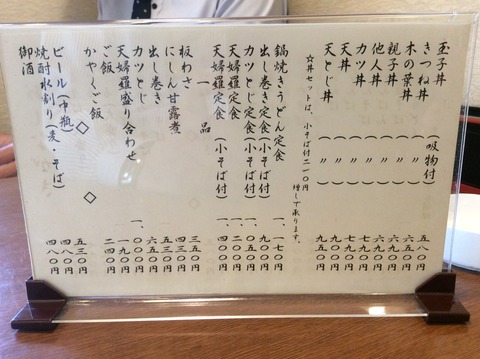 玉子丼 (吸物付) 五八〇円
きつね丼 (〃)
木の葉丼 (〃)
親子丼 (〃) 六九〇円
他人丼 (〃) 六九〇円
カツ丼 (〃) 七九〇円
天丼 (〃)
天とじ丼 (〃) 九五〇円
☆丼セットは、小そば付二一〇円増しで承ります。
鍋焼きうどん定食 一、一七〇円
出し巻き定食(小そば付) 九〇〇円
カツとじ定食(小そば付)
天婦羅定食
天婦羅定食(小そば付)
一品
板わさ 三五〇円
にしん甘露煮 四三〇円
出し巻き 五三〇円
カツとじ 六五〇円
天婦羅盛り合わせ 一、〇〇〇円
ご飯 一九〇円
かやくご飯 二四〇円
◇ ◇
ビール(中瓶) 五三〇円
焼酎水割り(麦・そば) 四八〇円
御酒 四八〇円